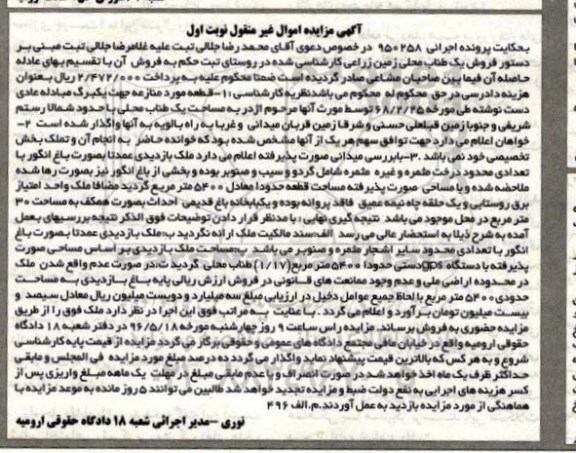 آگهی مزایده اموال غیر منقول نوبت اول
بحکایت پرونده اجرائی ۹۵۰۲۵۸ در خصوص دعوی آقای محمدرضا جلالی تبت علیه غلامرضا جلالی تبت مبنی بر
دستور فروش یک طناب محلی زمین زراعی کارشناسی شده در روستای تبت حکم به فروش آن با تقسیم بهای عادله
حاصله آن فیما بین صاحبان مشاعی صادر گردیده است ضمنا محکوم علیه به پرداخت ۲/۴۷۲/۰۰۰ ریال بعنوان
هزینه دادرسی در حق محکوم له محکوم می باشد نظریه کارشناسی ۱- قطعه مورد منازعه جهت یکبرگ مبادله عادی
دست نوشته طی مورخه ۶۸/۲/۲۵ توسط مورث آنها مرحوم اژدر به مساحت یک طناب محلی با حدود شمالا رستم
شریفی و جنوبا زمین قبلعلی حسنی و شرقا زمین قربان میدانی و غربا به راه بالویه به آنها واگذار شده است ۲-
خواهان اعلام می دارد جهت توافق سهم هر یک از آنها مشخص شده بود که خوانده حاضر به انجام آن و تملک بخش
تخصیصی خود نمی باشد. ۳- بابررسی میدانی صورت پذیرفته اعلام می دارد ملک بازدیدی عمدتا بصورت باغ انگور با
تعدادی محدود درخت مثمره و غیره مثمره شامل گردو و سیب و صنوبر بوده و بخشی از باغ انگور نیز بصورت رها شده
ملاحضه شده و با مساحی صورت پذیرفته مساحت قطعه حدودا معادل ۵۴۰۰ متر مربع گردید مضافا ملک واحد امتیاز
برق روستایی و یک حلقه چاه نیمه عمیق فاقد پروانه بوده و یکبابخانه باغ قدیمی احداث بصورت همکف به مساحت ۳۰
متر مربع در محل موجود می باشد نتیجه گیری نهایی: با مدنظر قرار دادن توضیحات فوق الذکر نتیجه بررسیهای بعمل
آمده به شرح ذیلا به استحضار عالی می رسد الف: سند مالکیت ملک ارائه نگردید ب: ملک بازدیدی عمدتا بصورت باغ
انگور با تعدادی محدود سایر اشجار مثمره و صنوبر می باشد ب: مساحت ملک بازدیدی بر اساس مساحی صورت
پذیرفته با دستگاه gps دستی حدودا ۵۴۰۰ متر مربع (۱/۱۷) طناب محلی گردید ت: در صورت عدم واقع شدن ملک
در محدوده اراضی ملی و عدم وجود ممانعت های قانونی در فروش ارزش ریالی پایه باغ بازدیدی به مساحت
حدودی ۵۴۰۰ متر مربع با لحاظ جمیع عوامل دخیل در ارزیابی مبلغ سه میلیارد و دویست میلیون ریال معادل سیصد و
بیست میلیون تومان برآورد و اعلام می گردد. با عنایت به مراتب فوق این اجرا در نظر دارد ملک فوق را از طریق
مزایده حضوری به فروش برساند. مزایده راس ساعت ۹ روز چهارشنبه مورخه ۹۶/۵/۱۸ در دفتر شعبه ۱۸ دادگاه
حقوقی ارومیه واقع در خیابان مافی مجتمع دادگاه های عمومی و حقوقی برگزار می گردد مزایده از قیمت پایه کارشناسی
شروع و به هر کس که بالاترین قیمت پیشنهاد نماید واگذار می گردد ده درصد مبلغ مورد مزایده فی المجلس و مابقی
حداکثر ظرف یک ماه اخذ خواهد شد در صورت انصراف و یا عدم مابقی مبلغ در مهلت یک ماهه مبلغ واریزی پس از
کسر هزینه های اجرایی به نفع دولت ضبط و مزایده تجدید خواهد شد طالبین می توانند ۵ روز مانده به موعد مزایده با
هماهنگی از مورد مزایده بازدید به عمل آوردند. م الف ۴۹۶
نوری - مدیر اجرائی شعبه ۱۸ دادگاه حقوقی ارومیه